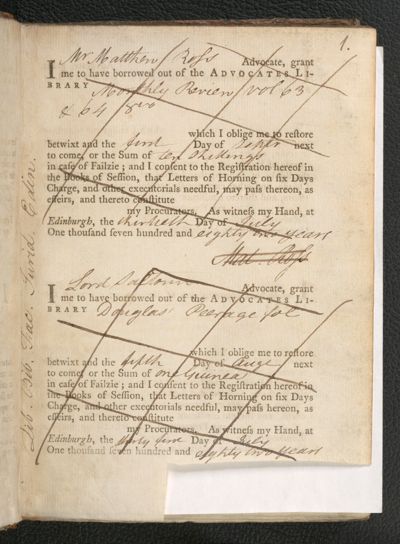 1.
I Mr Matthew Ross Advocate, grant
me to have borrowed out of the ADVOCATES LI-
BRARY Monthly Review vol 63
& 64 8vo
which I oblige me to restore
betwixt and the first Day of next
to come, or the Sum of Ten Shillings
in case of Failzie; and I consent to the Registration hereof in
the Books of Session, that Letters of Horning on six Days
Charge, and other executorials needful, may pass thereon, as
effeirs, and thereto constitute
my Procurators. As witness my Hand, at
Edinburgh, the thirtieth Day of July
One thousand seven hundred and eighty two years
Mat. Ross
I Lord Advocate, grant
me to have borrowed out of the ADVOCATES LI-
BRARY Douglas' Peerage fol
which I oblige me to restore
betwixt and the fifth Day of next
to come, or the Sum of one Guinea
in case of Failzie; and I consent to the Registration hereof in
the Books of Session, that Letters of Horning on six Days
Charge, and other executorials needful, may pass hereon, as
effeirs, and thereto constitute
my Procurators. As witness my Hand, at
Edinburgh, the thirty first Day of July
One thousand seven hundred and eighty two years
Lib. Bib. Fac. Jurid. Edin.